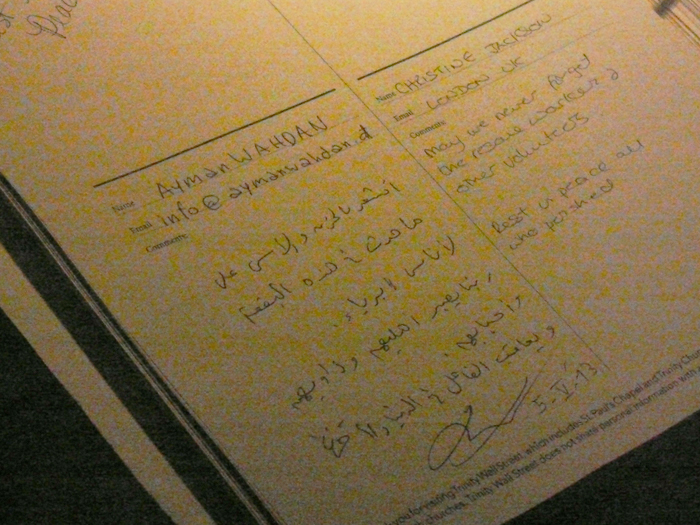 Name AYman WAHDAN
Email info@aymanwahdan.d
Comments:
أشعر بالحزن والاسى على
ما حدث في هذه البقعة
لأناس ابرياء.
ربنا يصبر اهليهم وذاويهم
وأحبابهم.
ويعاقب القاتل في الدنيا والآخرة
5-V-13
Name CHRISTINE JACKSON
Email LONDON UK
Comments
May we never forget
the rescue workers &
other volunteers
Rest in peace all
who perished
you for visiting Trinity Wall Street, which includes St. Paul's Chapel and Trinity Ch
churches. Trinity Wall Street does not share personal information with